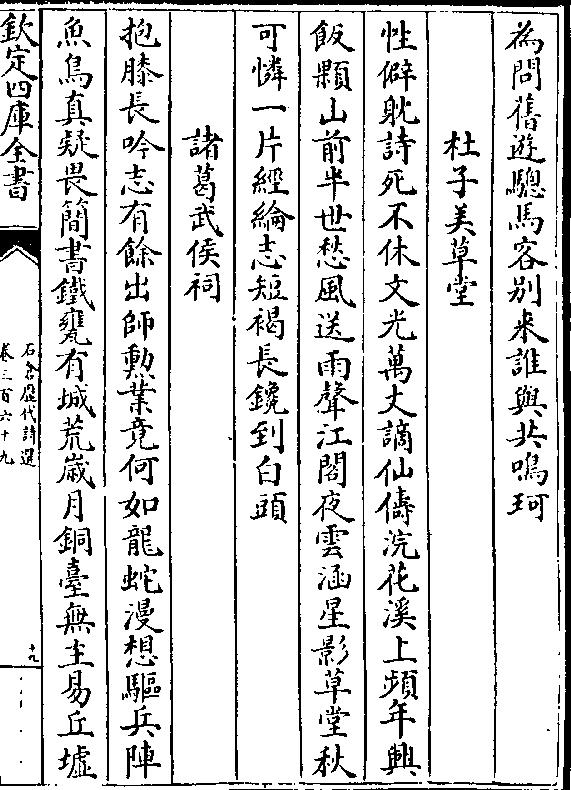 為問舊遊驄馬客別來誰與共鳴珂
杜子美草堂
性僻躭詩死不休文光萬丈謫仙儔浣花溪上頻年興
飯顆山前半世愁風送雨聲江閣夜雲涵星影草堂秋
可憐一片經綸志短褐長鑱到白頭
諸葛武侯祠
抱膝長吟志有餘出師勲業竟何如龍蛇漫想驅兵陣
魚鳥真疑畏簡書鐵甕有城荒嵗月銅臺無主易丘墟
欽定四庫全書
石倉歷代詩選
卷三百六十九
十九